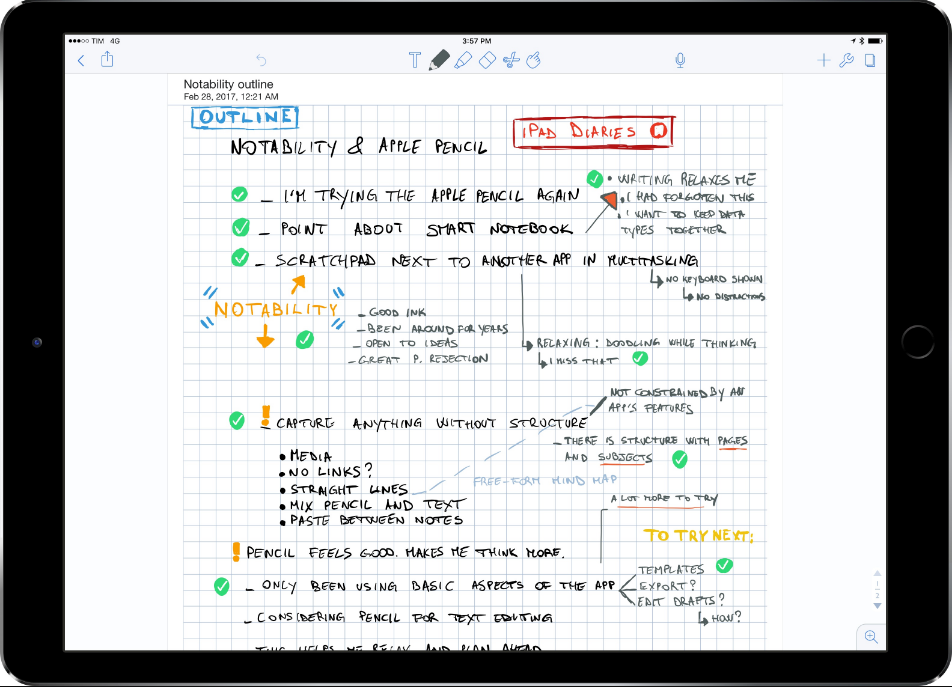 TIM 4G
3:57 PM
T
Notability outline
Feb 28, 2017, 12:21 AM
OUTLINE
iPAD DIARIES
NOTABILITY & APPLE PENCIL
– I'M TRYING THE APPLE PENCIL AGAIN
• WRITING RELAXES ME
• I HAD FORGOTTEN THIS
• I WANT TO KEEP DATA
TYPES TOGETHER
– POINT ABOUT SMART NOTEBOOK
– SCRATCHPAD NEXT TO ANOTHER APP IN MULTITASKING
NO KEYBOARD SHOWN
NO DISTRACTIONS
NOTABILITY
– GOOD INK
– BEEN AROUND FOR YEARS
– OPEN TO IDEAS
– GREAT P. REJECTION
RELAXING: DOODLING WHILE THINKING
I MISS THAT
! CAPTURE ANYTHING WITHOUT STRUCTURE
NOT CONSTRAINED BY AN
APP'S FEATURES
– THERE IS STRUCTURE WITH PAGES
AND SUBJECTS
• MEDIA
• NO LINKS?
• STRAIGHT LINES
• MIX PENCIL AND TEXT
• PASTE BETWEEN NOTES
FREE-FORM MIND MAP
A LOT MORE TO TRY
TO TRY NEXT:
! PENCIL FEELS GOOD. MAKES ME THINK MORE.
– ONLY BEEN USING BASIC ASPECTS OF THE APP
TEMPLATES
EXPORT?
EDIT DRAFTS?
HOW?
– CONSIDERING PENCIL FOR TEXT EDITING
THIS HELPS ME RELAX AND PLAN AHEAD
1
2